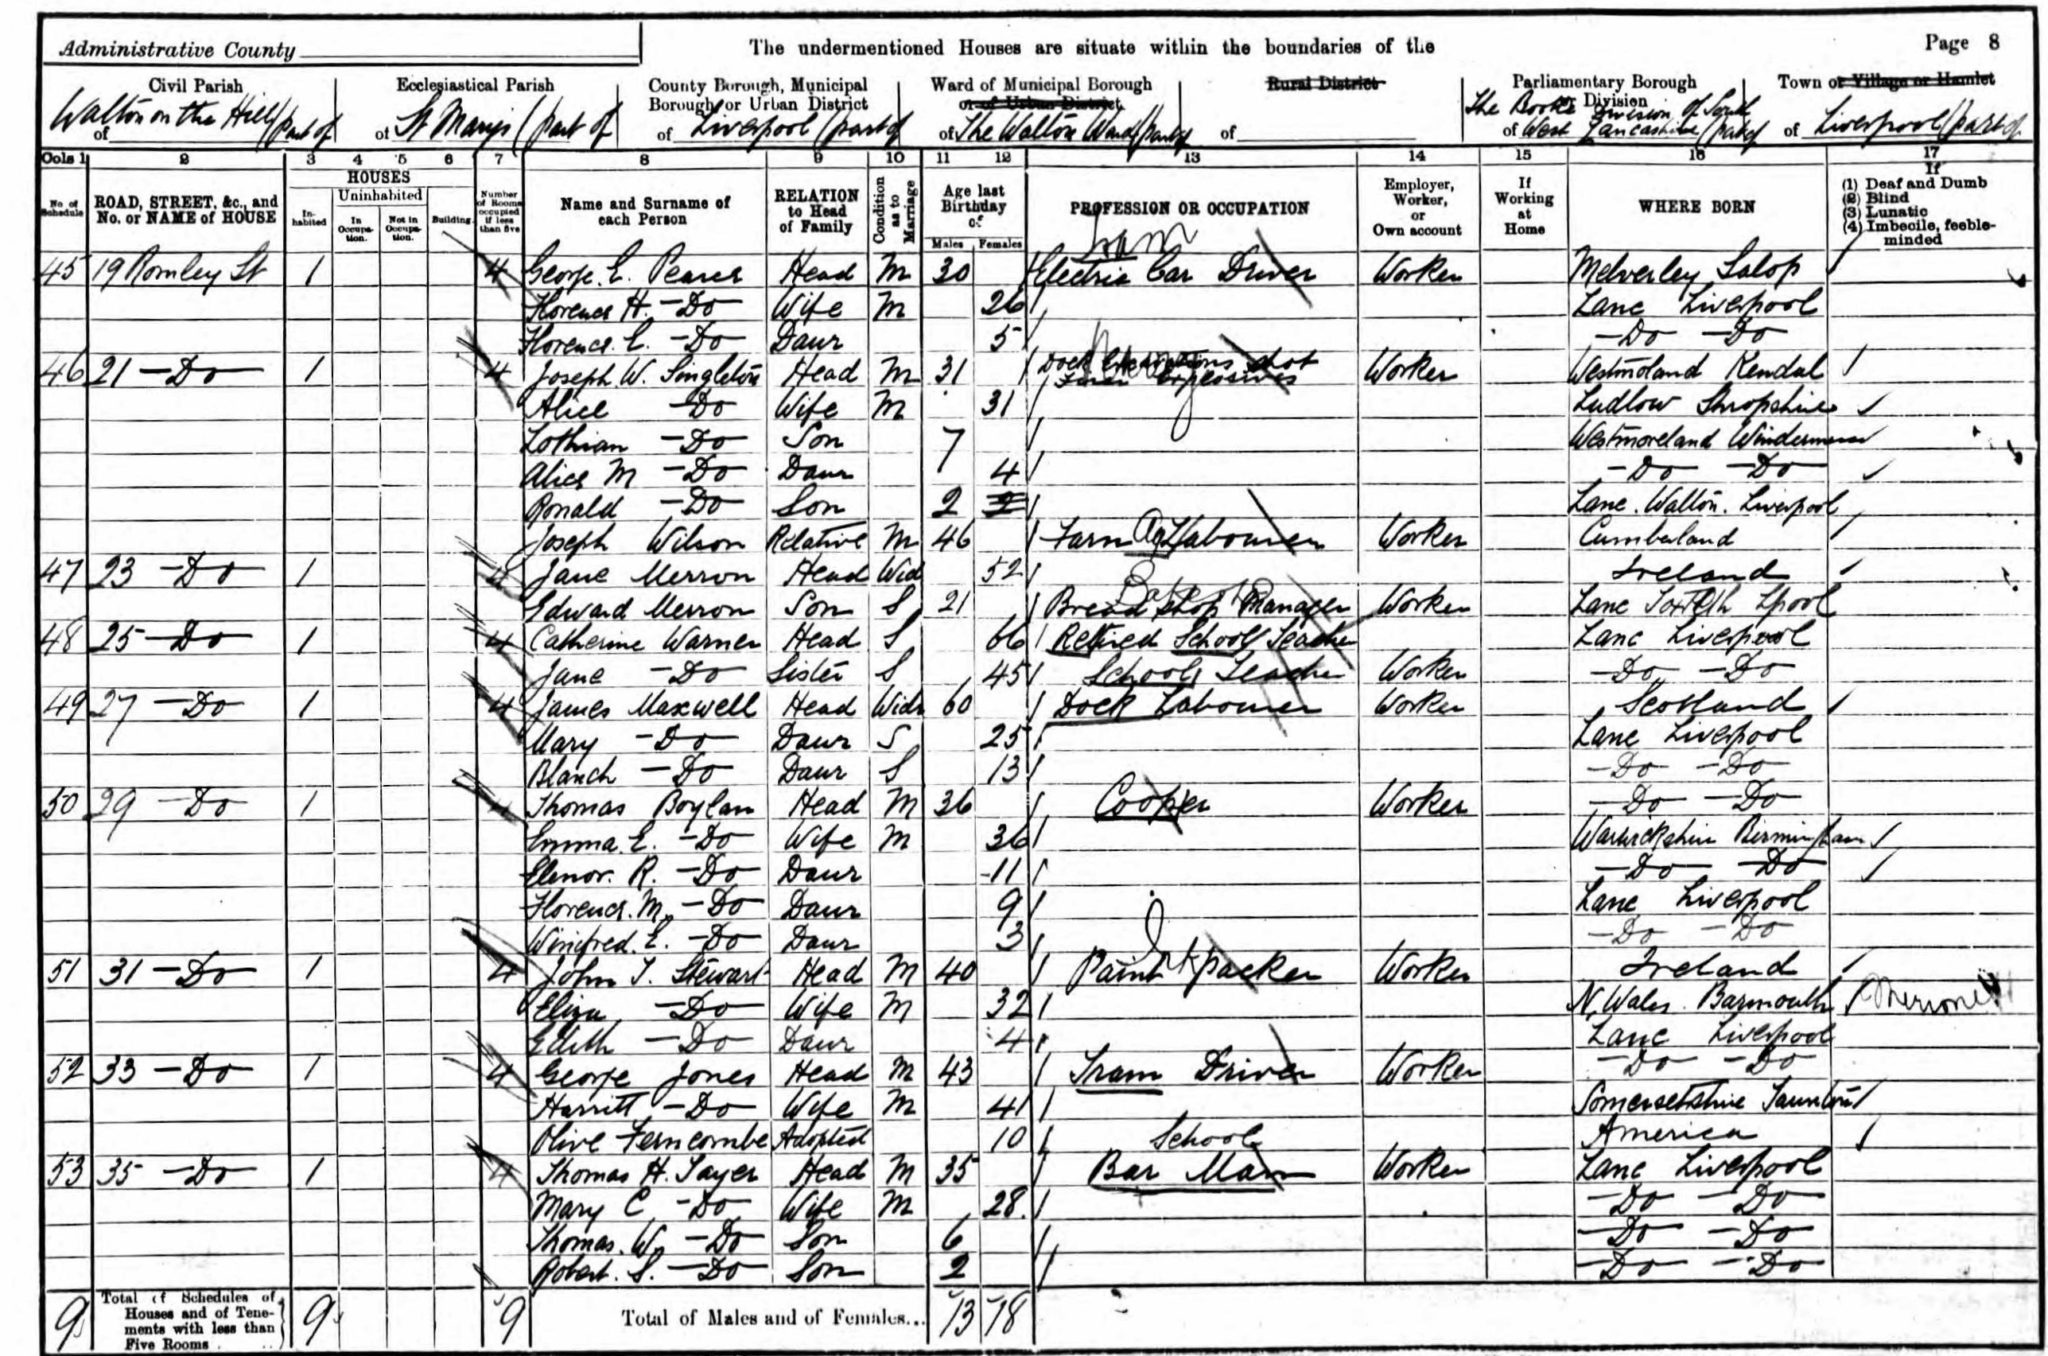 Administrative County
The undermentioned Houses are situate within the boundaries of the
Page 8
Civil Parish
of Walton on the Hill (part of
Ecclesiastical Parish
of St Marys (part of
County Borough, Municipal
Borough or Urban District
of Liverpool (part of
Ward of Municipal Borough
or of Urban District
of The Walton Ward (part of
Rural District
of
Parliamentary Borough
or Division
The Bootle Division of South
of West Lancashire (part of
Town or Village or Hamlet
of Liverpool (part of
Cols 1 2 3 4 5 6 7 8 9 10 11 12 13 14 15 16 17
No. of Schedule
ROAD, STREET, &c., and No. or NAME of HOUSE
HOUSES
Inhabited
Uninhabited
In Occupation.
Not in Occupation.
Building.
Number of Rooms occupied if less than five
Name and Surname of each Person
RELATION to Head of Family
Condition as to Marriage
Age last Birthday of
Males Females
PROFESSION OR OCCUPATION
Employer, Worker, or Own account
If Working at Home
WHERE BORN
If
(1) Deaf and Dumb
(2) Blind
(3) Lunatic
(4) Imbecile, feeble-minded
Tram
45 19 Romley St 1 4 George. E. Pearce Head M 30 Electric Car Driver Worker Melverley Salop
Florence H. -Do Wife M 26 Lanc Liverpool
Florence. E. -Do Daur 5 -Do -Do
46 21 -Do 1 4 Joseph W. Singleton Head M 31 Dock shot Explosives Worker Westmoland Kendal
Alice -Do Wife M 31 Ludlow Shropshire
Lothian -Do Son 7 Westmoreland Windermere
Alice M -Do Daur 4 -Do -Do
Ronald -Do Son 2 Lanc. Walton. Liverpool
Joseph Wilson Relative M 46 Farm Labourer Worker Cumberland
Ag
47 23 -Do 1 4 Jane Merron Head Wid 52 Ireland
Edward Merron Son S 21 Bread Shop Manager Worker Lanc Toxteth Lpool
48 25 -Do 1 4 Catherine Warner Head S 66 Retired School Teacher Lanc Liverpool
Jane -Do Sister S 45 School Teacher Worker -Do -Do
49 27 -Do 1 4 James Maxwell Head Widr 60 Dock Labourer Worker Scotland
Mary -Do Daur S 25 Lanc Liverpool
Blanch -Do Daur S 13 -Do -Do
50 29 -Do 1 4 Thomas Boylan Head M 36 Cooper Worker -Do -Do
Emma. E. -Do Wife M 36 Warwickshire Birmingham
Elenor. R. -Do Daur 11 -Do -Do
Florence. M. -Do Daur 9 Lanc Liverpool
Winifred. E. -Do Daur 3 -Do -Do
51 31 -Do 1 4 John T. Stewart Head M 40 Paint packer Worker Ireland
Eliza -Do Wife M 32 N. Wales. Barmouth Merioneth
Edith -Do Daur 4 Lanc Liverpool
52 33 -Do 1 4 George Jones Head M 43 Tram Driver Worker -Do -Do
Harritt -Do Wife M 41 Somersetshire Taunton
Olive Ferncombe Adopted 10 School America
53 35 -Do 1 4 Thomas H. Sayer Head M 35 Bar Man Worker Lanc Liverpool
Mary C -Do Wife M 28. -Do -Do
Thomas. W. -Do Son 6 -Do -Do
Robert. S. -Do Son 2 -Do -Do
9 Total of Schedules of Houses and of Tenements with less than Five Rooms 9 9 Total of Males and of Females... 13 18